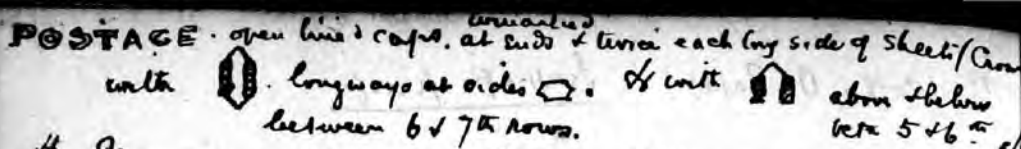 unwanted
POSTAGE. open lined caps. at ends & twice each long side of sheets (Crown
with . longways at sides . & with above & below
between 6 & 7th rows. betn 5 & 6th